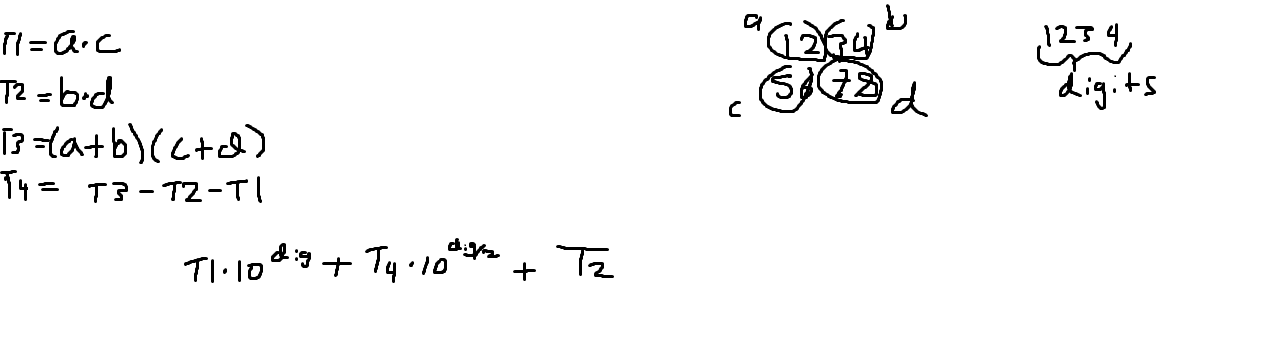 T1 = a·c
T2 = b·d
T3 = (a+b)(c+d)
T4 = T3 - T2 - T1
T1·10^dig + T4·10^dig/2 + T2
a 12 34 b
c 56 78 d
1234
digits